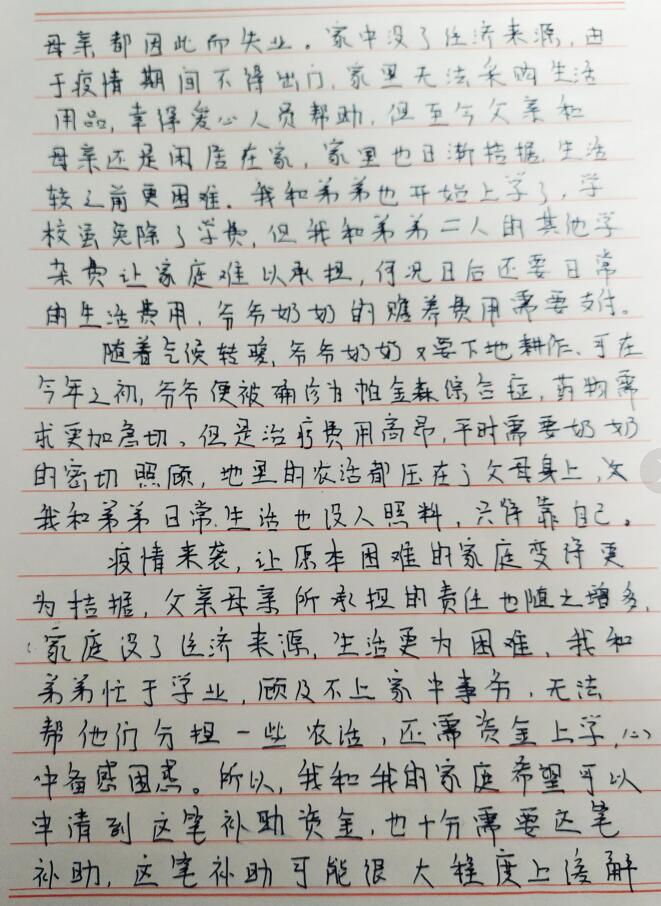 母亲都因此而失业。家中没了经济来源,由
于疫情期间不得出门,家里无法采购生活
用品,幸得爱心人员帮助,但至今父亲和
母亲还是闲居在家,家里也日渐拮据,生活
较之前更困难。我和弟弟也开始上学了,学
校虽免除了学费,但我和弟弟二人的其他学
杂费让家庭难以承担,何况日后还要日常
的生活费用,爷爷奶奶的赡养费用需要支付。
随着气候转暖,爷爷奶奶又要下地耕作、可在
今年之初,爷爷便被确诊为帕金森综合症,药物需
求更加急切、但是治疗费用高昂,平时需要奶奶
的密切照顾,地里的农活都压在了父母身上,
我和弟弟日常生活也没人照料,只得靠自己。
疫情来袭,让原本困难的家庭变得更
为拮据,父亲母亲所承担的责任也随之增多,
家庭没了经济来源,生活更为困难,我和
弟弟忙于学业,顾及不上家中事务,无法
帮他们分担一些农活,还需资金上学,心
中备感困惑。所以,我和我的家庭希望可以
申请到这笔补助资金,也十分需要这笔
补助,这笔补助可能很大程度上缓解